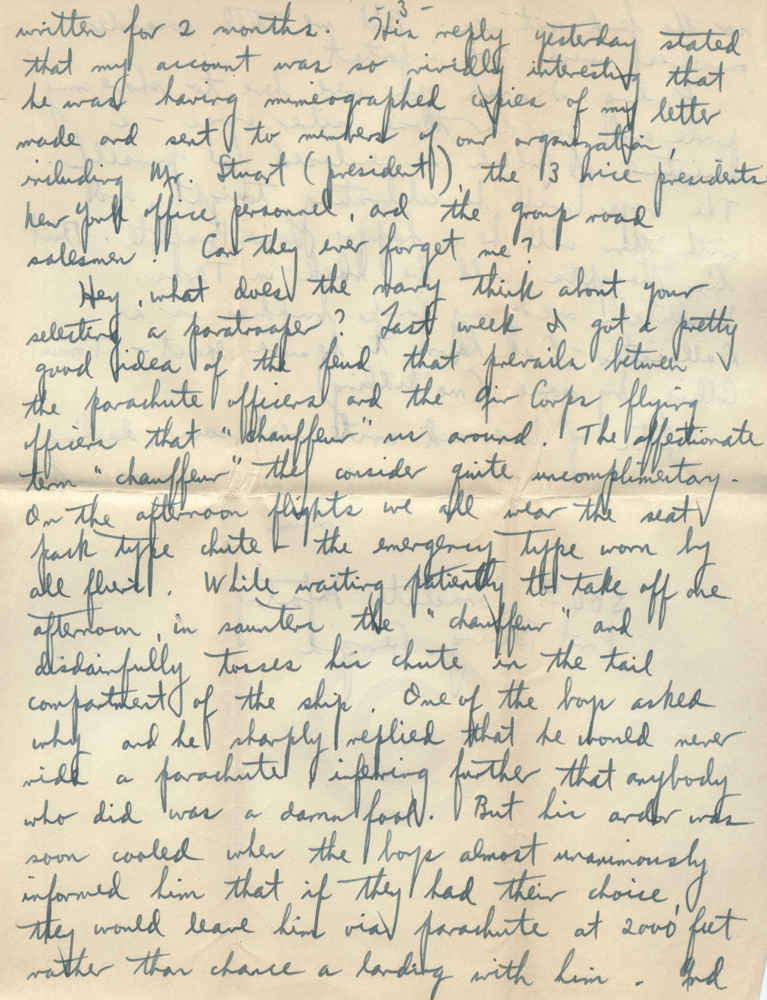 -3-
written for 2 months. His reply yesterday stated
that my account was so vividly interesting that
he was having mimeographed copies of my letter
made and sent to members of our organization,
including Mr. Stuart (president), the 3 vice presidents
New York office personnel, and the group road
salesmen. Can they ever forget me?
Hey, what does the navy think about your
selecting a paratrooper? Last week I got a pretty
good idea of the feud that prevails between
the parachute officers and the Air Corps flying
officers that "chauffeur" us around. The affectionate
term "chauffeur" they consider quite uncomplimentary.
On the afternoon flights we all wear the seat
pack type chute - the emergency type worn by
all fliers. While waiting patiently to take off one
afternoon, in saunters the "chauffeur" and
disdainfully tosses his chute in the tail
compartment of the ship. One of the boys asked
why and he sharply replied that he would never
ride a parachute, inferring further that anybody
who did was a damn fool. But his ardor was
soon cooled when the boys almost unanimously
informed him that if they had their choice,
they would leave him via parachute at 2000 feet
rather than chance a landing with him. And